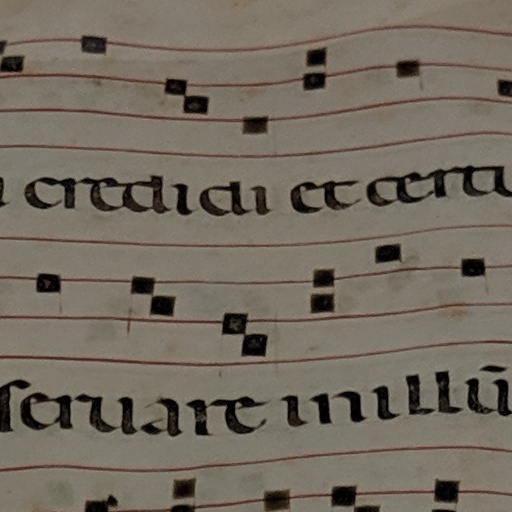 credidi et certu
seruare in illū